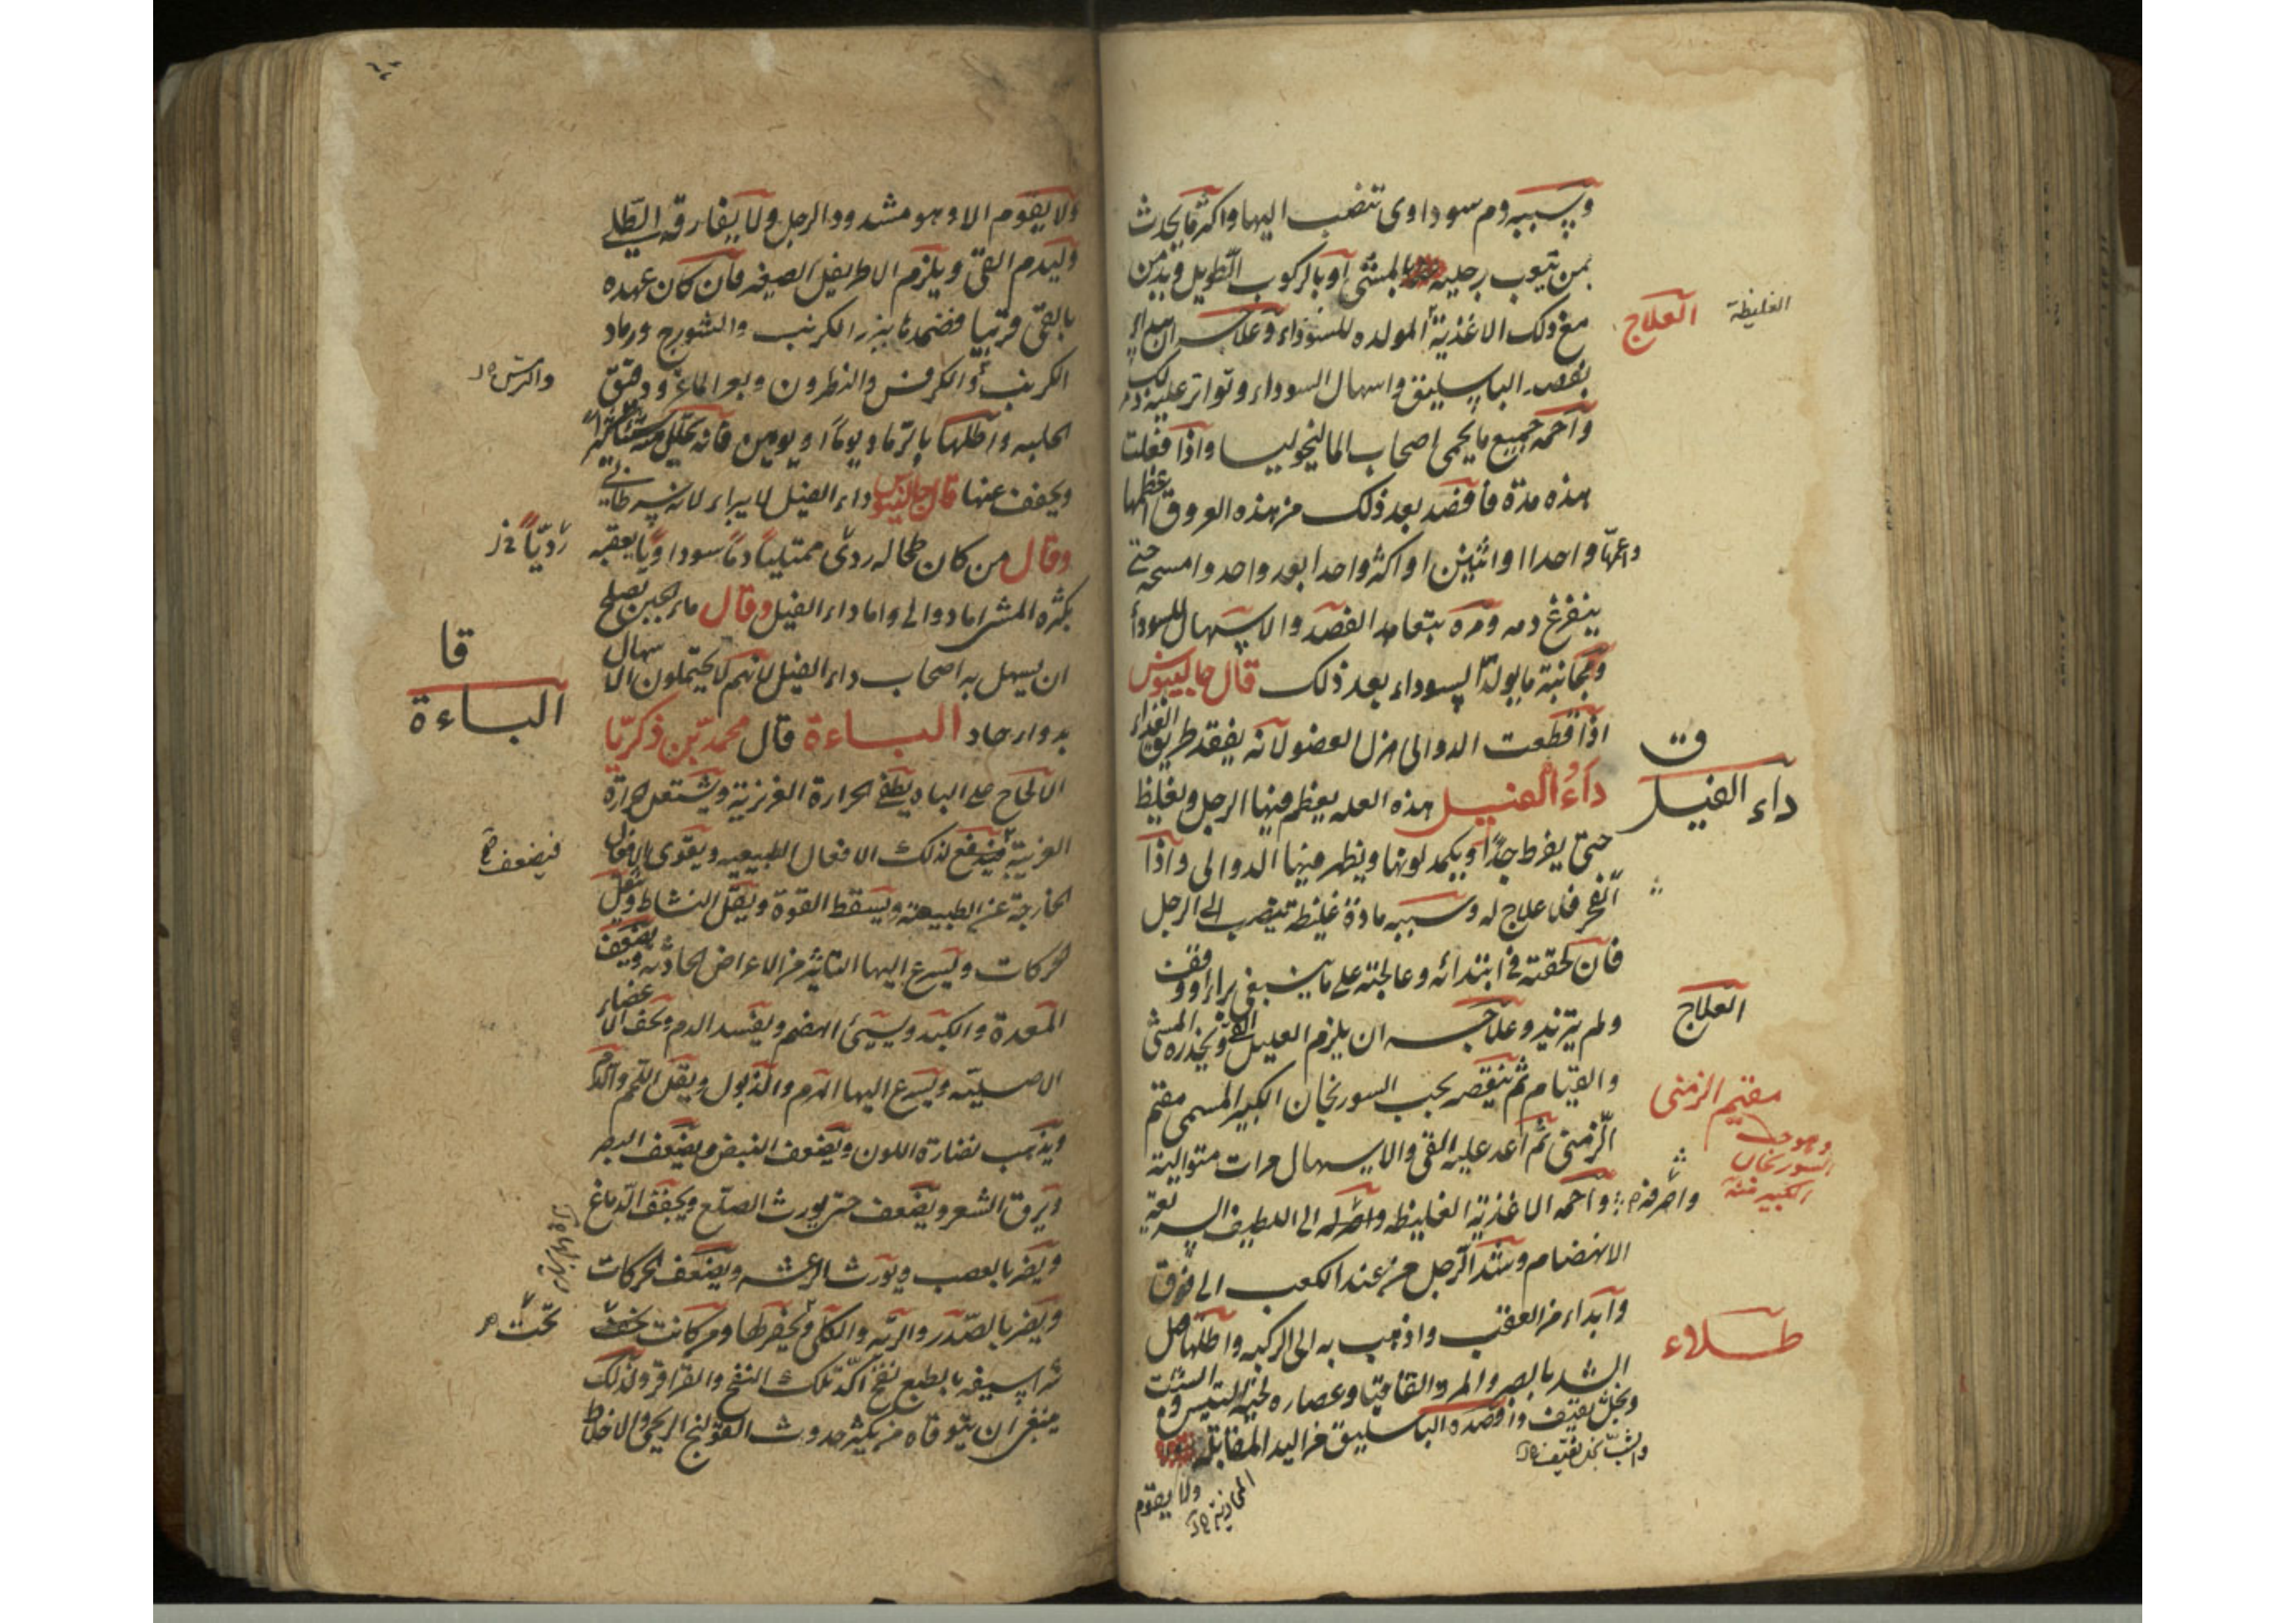 وسببه دم سوداوى تنصب اليها واكثر ما يحدث
بمن تتعب رجليه بالمشى او بالركوب الطويل ويدمن
مع ذلك الاغذية المولده للسوداء وعلاجه ان يبداء
العلاج
الغليظة
بفصد الباسليق واسهال السوداء وتواتر عليه ذلك
واحمه جميع ما يحمى اصحاب الماليخوليا واذا فعلت
هذه مدة فافصد بعد ذلك من هذه العروق اعظمها
واعمها واحدا او اثنين او اكثر واحدا بعد واحد وامسحه حتى
ينفرغ دمه ومره بتعاهد الفصد والاسهال للسوداء
ومجانبة ما يولد السوداء بعد ذلك قال جالينوس
اذا قطعت الدوالى هزل العضو لانه يفقد طريق الغذاء
ق
داء الفيل
داء الفيل هذه العله يعظم فيها الرجل ويغلظ
حتى يفرط جدا ويكمد لونها ويظهر فيها الدوالى واذا
انفجر فلا علاج له وسببه مادة غليظه تنصب الى الرجل
فان لحقته فى ابتدائه وعالجته على ما ينبغى براء او وقف
ولم يتزيد وعلاجه ان يلزم العليل القى ويحذره المشى
العلاج
والقيام ثم ينقصه بحب السورنجان الكبير المسمى مقيم
مقيم الزمنى
وهو حب
السورنجان
الكبير منه
الزمنى ثم اعد عليه القى والاسهال مرات متوالية
واحمه الاغذية الغليظه وامله الى اللطيف السريعة
واصرفه
الانهضام وشد الرجل من عند الكعب الى فوق
وابداء من العقب واذهب به الى الركبه واطلها قبل
طلاء
الشد بالصبر والمر والقاقيا وعصاره لحية التيس والشب
وبخل ثقيف وافصده الباسليق من اليد المقابله
والشب بخل ثقيف
المحاذية
ولا يقوم
ولا يقوم الا وهو مشدود الرجل ولا يفارقه الطلى
وليدم القى ويلزم الاطريفل الصغير فان كان عهده
بالقى قريبا فضمده ببزر الكرنب والشورج ورماد
الكرنب والكرفس والنطرون وبعر الماعز ودقيق
والترمس
الحلبه واطلها بالرماد يوما او يومين فانه يحلل منه
ويخفف عنها قال جالينوس داء الفيل لا يبراء لانه سرطانى
وقال من كان طحاله ردى ممتليا دما سوداويا يعقبه
رديا
بكثره المشى اما دوالى واما داء الفيل وقال ماء الجبن يصلح
ان يسهل به اصحاب داء الفيل لانهم لا يحتملون الاسهال
قا
الباءة
بدواء حاد الباءة قال محمد بن زكريا
الالحاح على الباه يطفى الحرارة الغريزية ويشتعل الحرارة
الغريبة فيندفع لذلك الافعال الطبيعيه ويقوى الافعال
فيضعف
الخارجة عن الطبيعة ويسقط القوة ويقل النشاط ويثقل
الحركات ويسرع اليها التاثير من الاعراض الحادثه ويضعف
المعدة والكبد ويسىء الهضم ويفسد الدم ويجفف الاعضاء
الاصلية ويسرع اليها الهرم والذبول ويقل اللحم والدم
ويذهب نضارة اللون ويضعف النبض ويضعف البصر
ويرق الشعر ويضعف حتى يورث الصلع ويجفف الدماغ
ويضر بالعصب ويورث الرعشه ويضعف الحركات
ويضر بالصدر والريه والكلى ويحفرطها ومن كانت تحت
تحت
شراسيفه بالطبع نفخ اكد تلك النفخ والقراقر ولذلك
ينبغى ان يتوقاه من يكثر حدوث القولنج الريحى والاخلاط